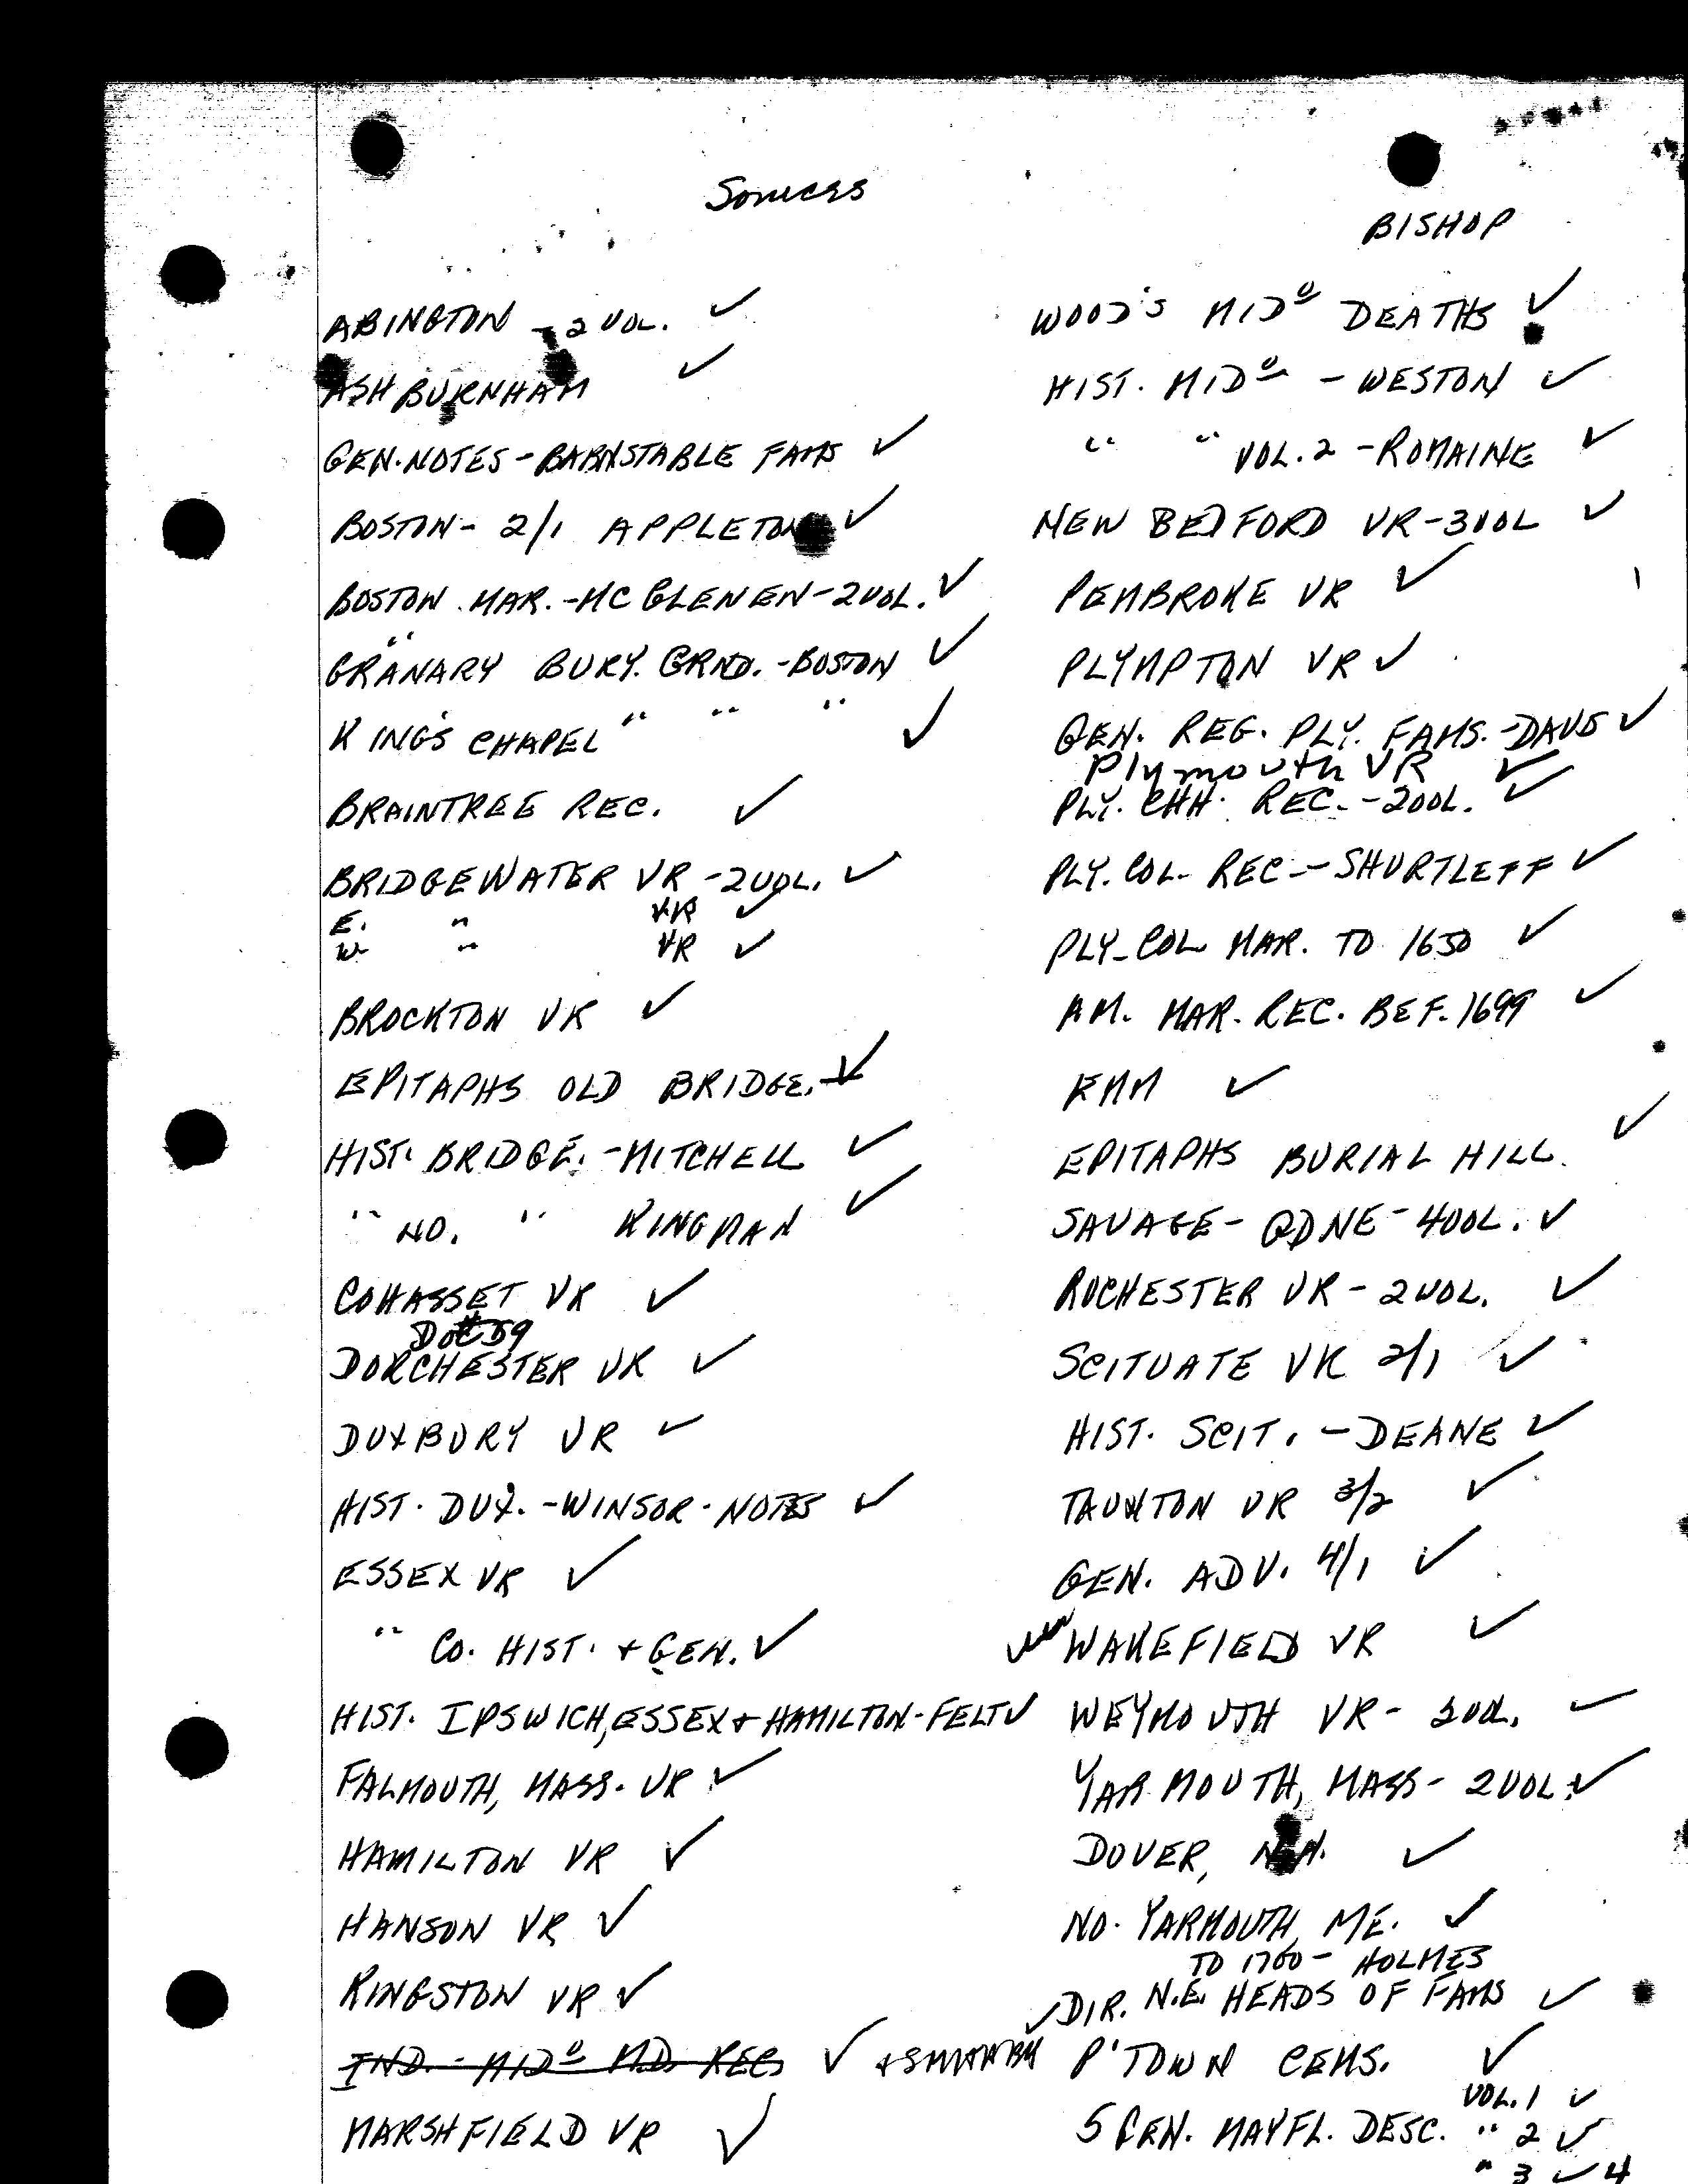 Sources
BISHOP
ABINGTON - 2 VOL. ✓
ASHBURNHAM ✓
GEN. NOTES - BARNSTABLE FAMS ✓
BOSTON - 2/1 APPLETON ✓
BOSTON MAR. - MC GLENEN - 2 VOL. ✓
GRANARY BURY. GRND. - BOSTON ✓
KING'S CHAPEL " " " ✓
BRAINTREE REC. ✓
BRIDGEWATER VR - 2 VOL. ✓
E. " VR ✓
W " VR ✓
BROCKTON VR ✓
EPITAPHS OLD BRIDGE. ✓
HIST. BRIDGE. - MITCHELL ✓
" NO. " KINGMAN ✓
COHASSET VR ✓
Doc #59
DORCHESTER VR ✓
DUXBURY VR ✓
HIST. DUX. - WINSOR - NOTES ✓
ESSEX VR ✓
" CO. HIST. + GEN. ✓
HIST. IPSWICH, ESSEX + HAMILTON - FELT ✓
FALMOUTH, MASS. VR ✓
HAMILTON VR ✓
HANSON VR ✓
KINGSTON VR ✓
IND. - MIDO M.D. RECS ✓
MARSHFIELD VR ✓
WOOD'S MIDO DEATHS ✓
HIST. MIDO - WESTON ✓
" " VOL. 2 - ROMAINE ✓
NEW BEDFORD VR - 3 VOL ✓
PEMBROKE VR ✓
PLYMPTON VR ✓
GEN. REG. PLY. FAMS. - DAVIS ✓
Plymouth VR ✓
PLY. CHH. REC. - 2 VOL. ✓
PLY. COL. REC. - SHURTLEFF ✓
PLY. COL MAR. TO 1650 ✓
AM. MAR. REC. BEF. 1699 ✓
EMM ✓
EPITAPHS BURIAL HILL. ✓
SAVAGE - GDNE - 4 VOL. ✓
ROCHESTER VR - 2 VOL. ✓
SCITUATE VR 2/1 ✓
HIST. SCIT. - DEANE ✓
TAUNTON VR 3/2 ✓
GEN. ADV. 4/1 ✓
WAKEFIELD VR ✓
WEYMOUTH VR - 2 VOL. ✓
YARMOUTH, MASS - 2 VOL. ✓
DOVER, N.H. ✓
NO. YARMOUTH, ME. ✓
TO 1760 - HOLMES
✓ DIR. N.E. HEADS OF FAMS ✓
P'TOWN CEMS. ✓
5 GEN. MAYFL. DESC. VOL. 1 ✓
" 2 ✓
" 3 ✓ 4